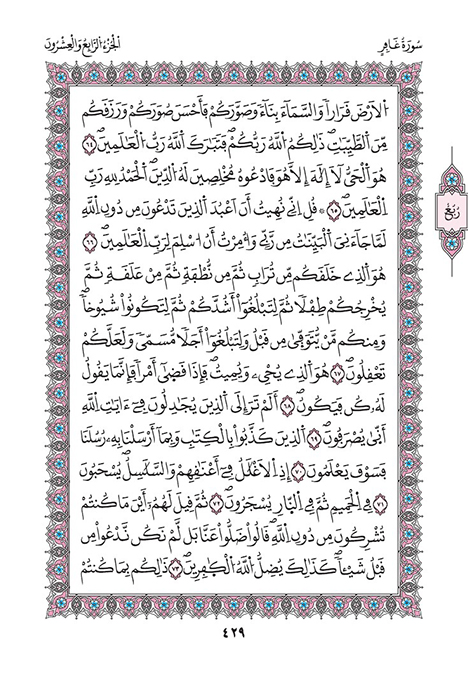 سُورَةُ غَافِرٍ
الْجُزْءُ الرَّابِعُ وَالْعِشْرُونَ
اَلَارْضَ قَرَاراٗ وَالسَّمَآءَ بِنَآءٗ وَصَوَّرَكُمْ فَأَحْسَنَ صُوَرَكُمْ وَرَزَقَكُم
مِّنَ اَلطَّيِّبَٰتِۖ ذَٰلِكُمُ اُللَّهُ رَبُّكُمْۖ فَتَبَٰرَكَ اَللَّهُ رَبُّ اُلْعَٰلَمِينَۖ ٦٤
هُوَ اَلْحَيُّ لَآ إِلَٰهَ إِلَّا هُوَ فَادْعُوهُ مُخْلِصِينَ لَهُ اُلدِّينَۖ اَلْحَمْدُ لِلهِ رَبِّ
اِلْعَٰلَمِينَۖ ٦٥ قُلِ اِنِّے نُهِيتُ أَنَ اَعْبُدَ اَلذِينَ تَدْعُونَ مِن دُونِ اِللَّهِ
لَمَّا جَآءَنِيَ اَلْبَيِّنَٰتُ مِن رَّبِّے وَأُمِرْتُ أَنُ اسْلِمَ لِرَبِّ اِلْعَٰلَمِينَۖ ٦٦
هُوَ اَلذِے خَلَقَكُم مِّن تُرَابٖ ثُمَّ مِن نُّطْفَةٖ ثُمَّ مِنْ عَلَقَةٖ ثُمَّ
يُخْرِجُكُمْ طِفْلاٗ ثُمَّ لِتَبْلُغُوٓاْ أَشُدَّكُمْ ثُمَّ لِتَكُونُواْ شُيُوخاٗۖ
وَمِنكُم مَّنْ يُّتَوَفّٰي مِن قَبْلُ وَلِتَبْلُغُوٓاْ أَجَلاٗ مُّسَمّيٗ وَلَعَلَّكُمْ
تَعْقِلُونَۖ ٦٧ هُوَ اَلذِے يُحْيِۦ وَيُمِيتُۖ فَإِذَا قَضٰيٓ أَمْراٗ فَإِنَّمَا يَقُولُ
لَهُۥ كُن فَيَكُونُۖ ٦٨ أَلَمْ تَرَ إِلَى اَلذِينَ يُجَٰدِلُونَ فِےٓ ءَايَٰتِ اِللَّهِ
أَنّٰي يُصْرَفُونَۖ ٦٩ اَلذِينَ كَذَّبُواْ بِالْكِتَٰبِ وَبِمَآ أَرْسَلْنَا بِهِۦ رُسُلَنَا
فَسَوْفَ يَعْلَمُونَ ٧٠ إِذِ اِلَاغْلَٰلُ فِےٓ أَعْنَٰقِهِمْ وَالسَّلَٰسِلُۖ يُسْحَبُونَ
٧١ فِے اِلْحَمِيمِ ثُمَّ فِے اِلنَّارِ يُسْجَرُونَۖ ٧٢ ثُمَّ قِيلَ لَهُمُۥٓ أَيْنَ مَا كُنتُمْ
تُشْرِكُونَ مِن دُونِ اِللَّهِۖ قَالُواْ ضَلُّواْ عَنَّا بَل لَّمْ نَكُن نَّدْعُواْ مِن
قَبْلُ شَيْـٔاٗۖ كَذَٰلِكَ يُضِلُّ اُللَّهُ اُلْكٰ۪فِرِينَۖ ٧٣ ذَٰلِكُم بِمَا كُنتُمْ
رُبُعْ
٤٢٩